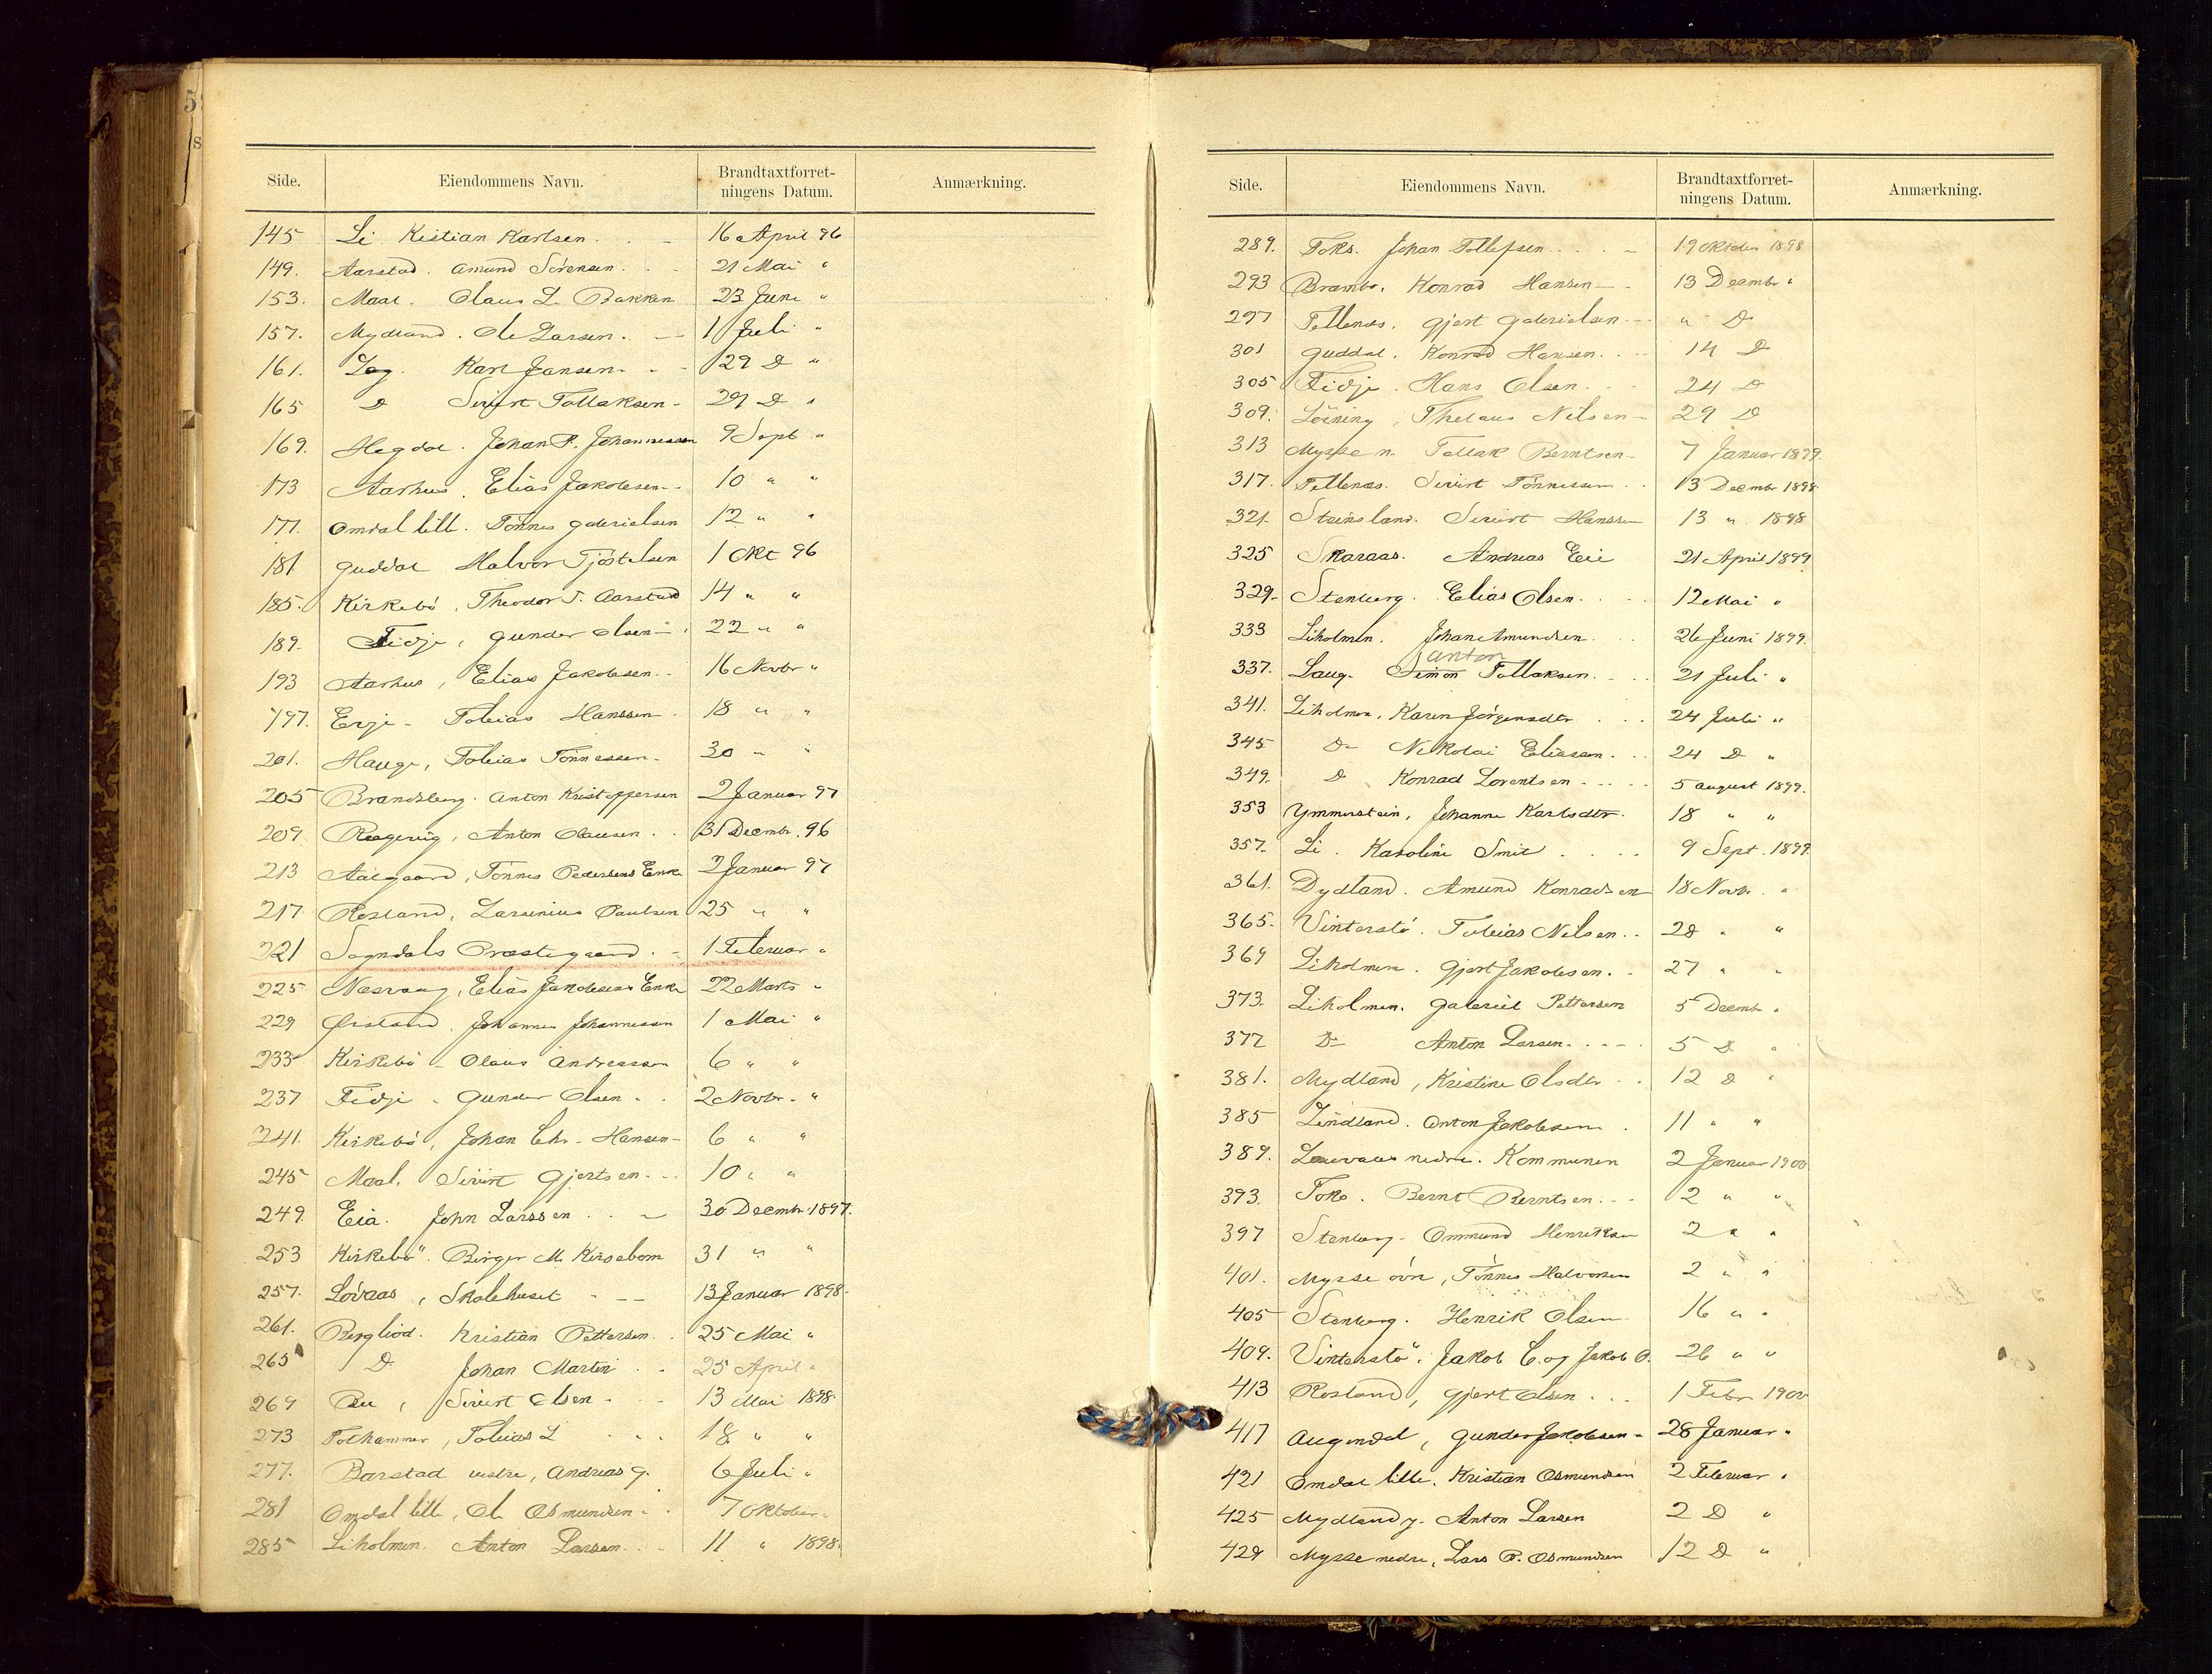 Side. Eiendommens Navn. Brandtaxtforret-ningens Datum. Anmærkning.
145 Li Kistian Karlsen. 16 April 96
149. Aarstad. Amund Sörensen. 21 Mai "
153. Maal. Olaus L. Bakken 23 Juni "
157. Mydland. Ole Larsen. 1 Juli "
161. Log. Karl Jansen 29 D "
165 D Sivert Tollaksen 29 D "
169. Hegdal. Johan P. Johannessen 9 Sept "
173 Aarhus. Elias Jakobsen 10 " "
177. Omdal lille. Tönnes Gabrielsen 12 " "
181 Guddal Halvor Tjöstelsen 1 Okt 96
185. Kirkebö, Theodor T. Aarstad 14 " "
189. Fidje, Gunder Olsen 22 " "
193 Aarhus, Elias Jakobsen 16 Novbr "
197. Evje Tobias Hanssen 18 " "
201. Hauge, Tobias Tönnessen 30 " "
205 Brandsberg. Anton Kristoffersen 2 Januar 97
209. Rægevig, Anton Olausen. 31 Decembr. 96
213 Aalgaard, Tönnes Pedersens Enke 2 Januar 97
217. Rosland, Larsenius Paulsen 25 " "
221 Sogndals Præstegaard. 1 Februar "
225 Nesvaag, Elias Jakobsens Enke 22 Marts "
229 Örsland. Johannes Johannessen 1 Mai "
233 Kirkebö - Olaus Andreassen 6 " "
237 Fidje - Gunder Olsen 2 Novbr. "
241. Kirkebö, Johan Chr. Hansen 6 " "
245 Maal. Sivert Gjertsen 10 " "
249. Eia. John Larssen 30 Decembr. 1897.
253 Kirkebö. Birger M. Kirsebom 31 " "
257. Lövaas, Skolehuset 13 Januar 1898
261. Bergliod. Kristian Pettersen. 25 Mai "
265 D. Johan Martin 25 April "
269 Bu, Sivert Olsen 13 Mai 1898
273 Tothammer, Tobias L 18 " "
277. Barstad vestre, Andreas G. 6 Juli "
281 Omdal lille, Ole Osmundsen 7 Oktober "
285 Liholmen. Anton Larsen 11 " 1898.
Side. Eiendommens Navn. Brandtaxtforret-ningens Datum. Anmærkning.
289. Foks. Johan Tollefsen 19 Oktober 1898
293 Brambo. Konrad Hansen 13 Decembr "
297 Tellenes. Gjert Gabrielsen " D
301 Guddal. Konrad Hansen. 14 D
305 Fidje. Hans Olsen. 24 D
309. Löining, Thelaus Nilsen 29 D
313 Mysse n. Tollak Berntsen 7 Januar 1899.
317. Tellenes. Sivert Tönnessen 13 Decembr 1898
321. Steinsland. Sivert Hanssen 13 " 1898
325 Skaraas. Andreas Eie 21 April 1899
329. Stenberg. Elias Olsen. 12 Mai "
333 Liholmen. Johan Amundsen 26 Juni 1899.
Anton
337. Laug. Simon Tollaksen 21 Juli "
341. Liholmen, Karen Jörgensdtr 24 Juli "
345 D Nikolai Eliassen. 24 D "
349. D Konrad Lorentsen 5 August 1899.
353 Ymmerstein, Johanne Karlsdtr. 18 " "
357. Li. Karoline Smit 9 Sept. 1899
361. Dydland. Amund Konradsen 18 Novbr. "
365. Vinterstö. Tobias Nilsen. 28 " "
369 Liholmen. Gjert Jakobsen. 27 " "
373. Liholmen. Gabriel Pettersen 5 Decembr "
377 D Anton Larsen. 5 D "
381. Mydland, Kristine Olsdtr 12 D "
385 Lindland. Anton Jakobsen 11 " "
389. Lauvaas nedre. Kommunen 2 Januar 1900
393. Foks. Bernt Berntsen. 2 " "
397 Stenberg - Ommund Henriksen 2 " "
401. Mysse övre, Tönnes Halvorsen 2 " "
405 Stenberg. Henrik Olsen 16 " "
409. Vinterstö. Jakob C. og Jakob O. 26 " "
413 Rosland, Gjert Olsen 1 Febr 1900
417 Augendal, Gunder Jakobsen 28 Januar "
421 Omdal lille. Kristian Osmundsen 2 Februar "
425 Mydland y. Anton Larsen 2 D "
429 Mysse nedre, Lars P. Osmundsen 12 D "